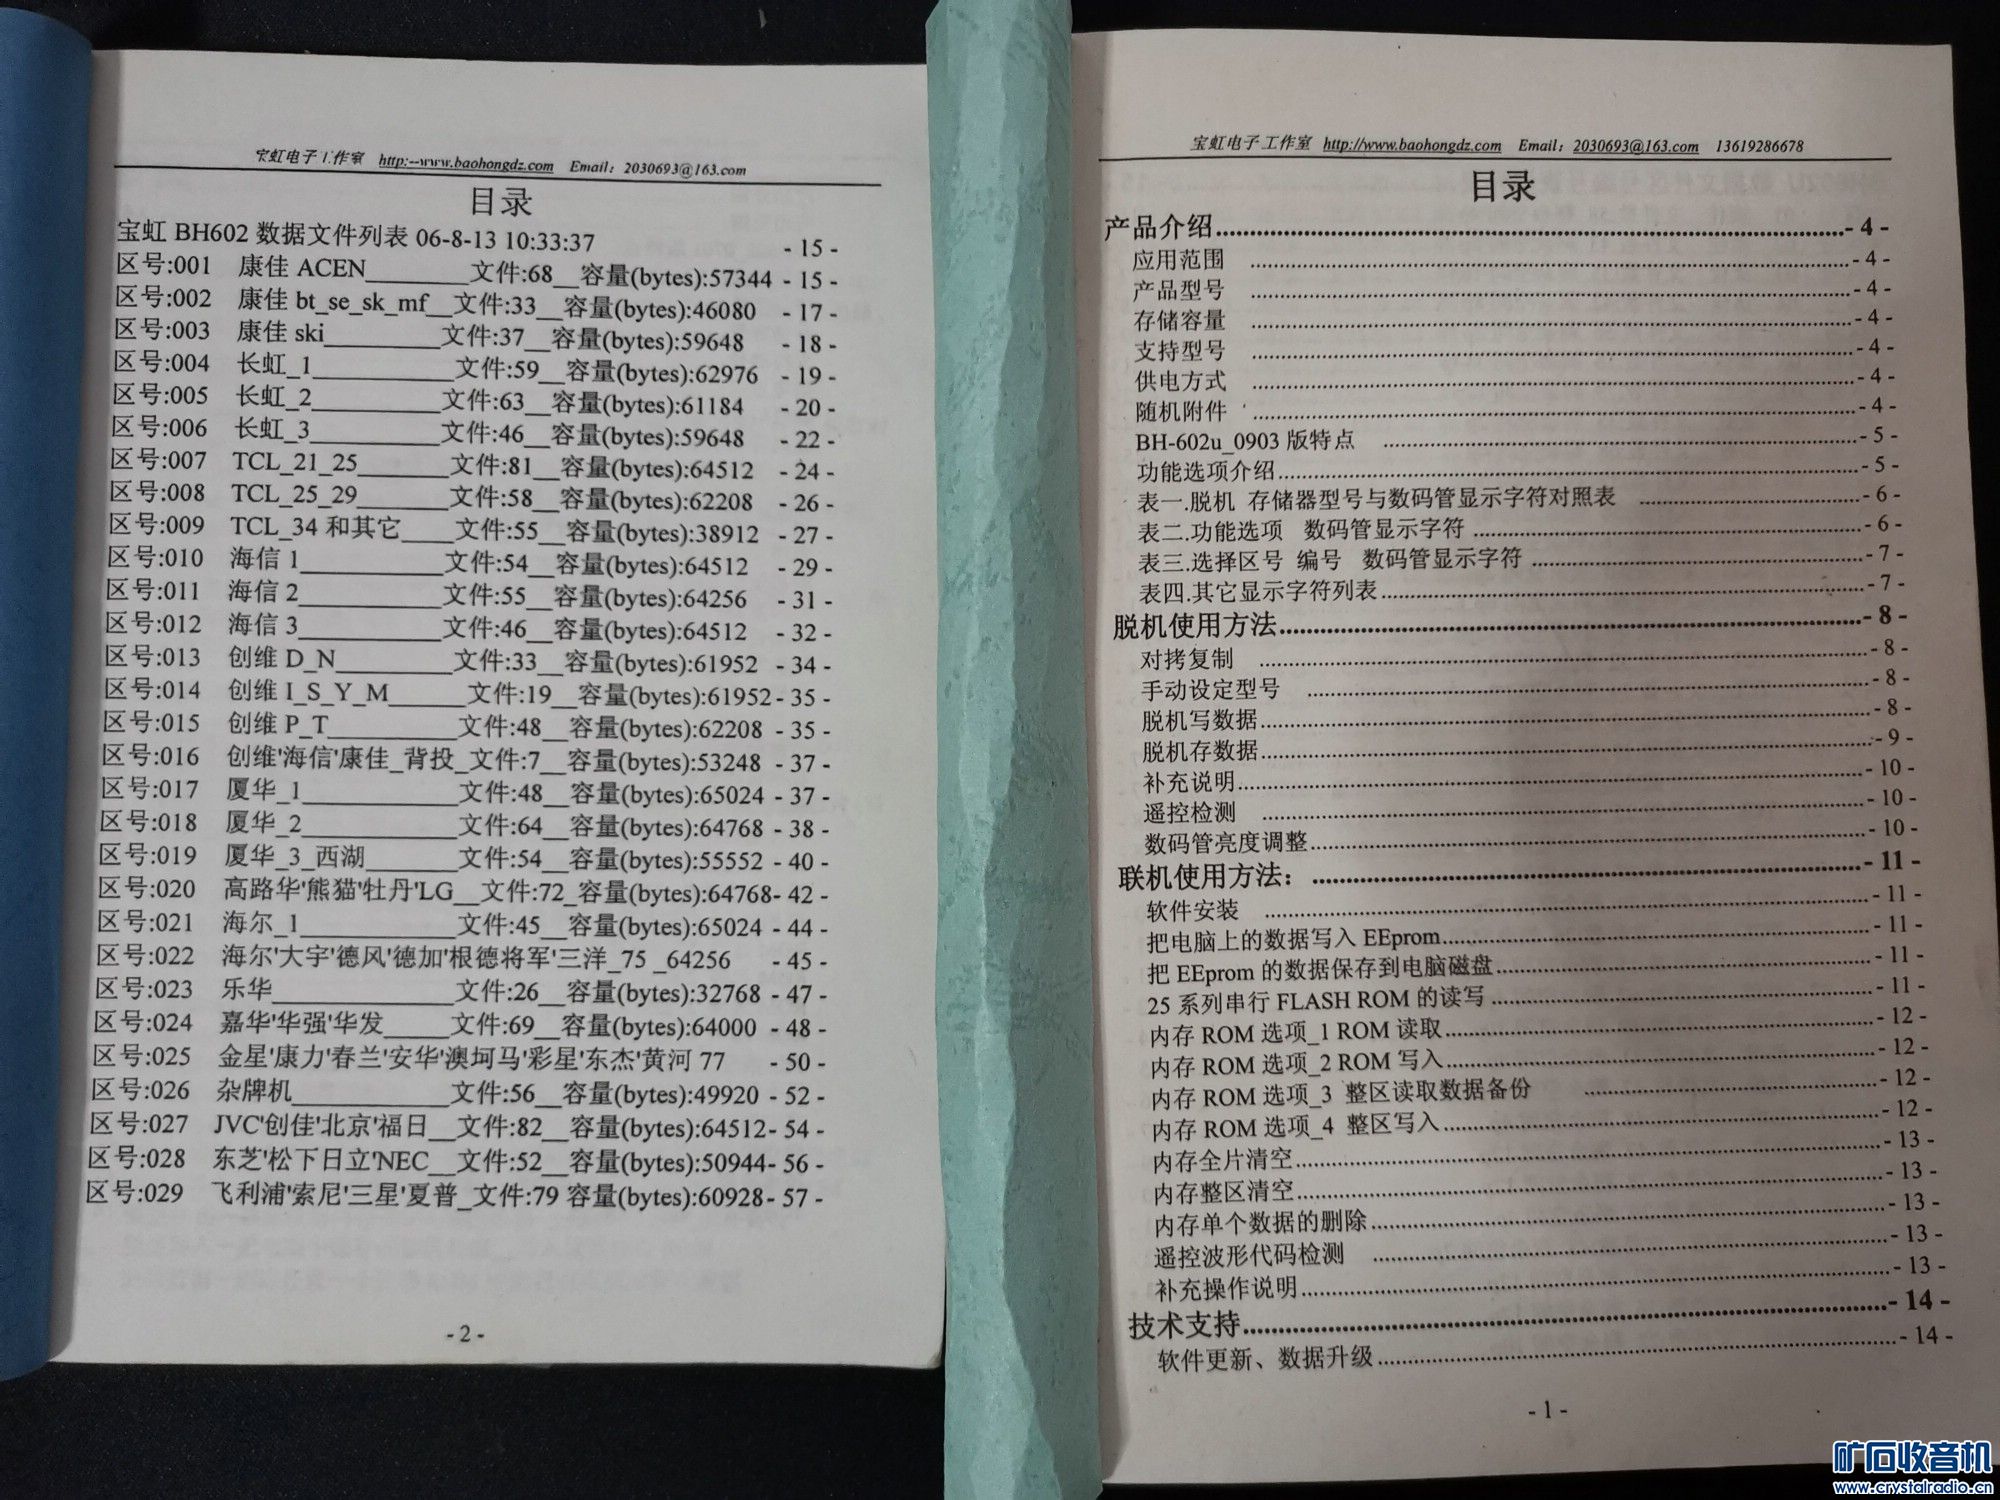 宝虹电子工作室 http:--www.baohongdz.com Email: 2030693@163.com
目录
宝虹 BH602 数据文件列表 06-8-13 10:33:37 - 15 -
区号:001 康佳 ACEN________文件:68__容量(bytes):57344 - 15 -
区号:002 康佳 bt_se_sk_mf__文件:33__容量(bytes):46080 - 17 -
区号:003 康佳 ski_________文件:37__容量(bytes):59648 - 18 -
区号:004 长虹_1___________文件:59__容量(bytes):62976 - 19 -
区号:005 长虹_2__________文件:63__容量(bytes):61184 - 20 -
区号:006 长虹_3__________文件:46__容量(bytes):59648 - 22 -
区号:007 TCL_21_25_______文件:81__容量(bytes):64512 - 24 -
区号:008 TCL_25_29_______文件:58__容量(bytes):62208 - 26 -
区号:009 TCL_34 和其它____文件:55__容量(bytes):38912 - 27 -
区号:010 海信 1___________文件:54__容量(bytes):64512 - 29 -
区号:011 海信 2___________文件:55__容量(bytes):64256 - 31 -
区号:012 海信 3___________文件:46__容量(bytes):64512 - 32 -
区号:013 创维 D_N_________文件:33__容量(bytes):61952 - 34 -
区号:014 创维 I_S_Y_M______文件:19__容量(bytes):61952 - 35 -
区号:015 创维 P_T__________文件:48__容量(bytes):62208 - 35 -
区号:016 创维'海信'康佳_背投_文件:7__容量(bytes):53248 - 37 -
区号:017 厦华_1____________文件:48__容量(bytes):65024 - 37 -
区号:018 厦华_2____________文件:64__容量(bytes):64768 - 38 -
区号:019 厦华_3_西湖_______文件:54__容量(bytes):55552 - 40 -
区号:020 高路华'熊猫'牡丹'LG__文件:72_容量(bytes):64768 - 42 -
区号:021 海尔_1____________文件:45__容量(bytes):65024 - 44 -
区号:022 海尔'大宇'德风'德加'根德将军'三洋_75 _64256 - 45 -
区号:023 乐华______________文件:26__容量(bytes):32768 - 47 -
区号:024 嘉华'华强'华发_____文件:69__容量(bytes):64000 - 48 -
区号:025 金星'康力'春兰'安华'澳坷马'彩星'东杰'黄河 77 - 50 -
区号:026 杂牌机____________文件:56__容量(bytes):49920 - 52 -
区号:027 JVC'创佳'北京'福日__文件:82__容量(bytes):64512 - 54 -
区号:028 东芝'松下日立'NEC__文件:52__容量(bytes):50944 - 56 -
区号:029 飞利浦'索尼'三星'夏普_文件:79 容量(bytes):60928 - 57 -
- 2 -
宝虹电子工作室 http://www.baohongdz.com Email: 2030693@163.com 13619286678
目录
产品介绍........................................ - 4 -
应用范围 ........................................ - 4 -
产品型号 ........................................ - 4 -
存储容量 ........................................ - 4 -
支持型号 ........................................ - 4 -
供电方式 ........................................ - 4 -
随机附件 ........................................ - 4 -
BH-602u_0903 版特点 ........................................ - 5 -
功能选项介绍........................................ - 5 -
表一.脱机 存储器型号与数码管显示字符对照表 .................... - 6 -
表二.功能选项 数码管显示字符 .................... - 6 -
表三.选择区号 编号 数码管显示字符 .................... - 7 -
表四.其它显示字符列表........................................ - 7 -
脱机使用方法........................................ - 8 -
对拷复制 ........................................ - 8 -
手动设定型号 ........................................ - 8 -
脱机写数据........................................ - 8 -
脱机存数据........................................ - 9 -
补充说明........................................ - 10 -
遥控检测 ........................................ - 10 -
数码管亮度调整........................................ - 10 -
联机使用方法： ........................................ - 11 -
软件安装 ........................................ - 11 -
把电脑上的数据写入 EEprom........................................ - 11 -
把 EEprom 的数据保存到电脑磁盘.................... - 11 -
25 系列串行 FLASH ROM 的读写 .................... - 11 -
内存 ROM 选项_1 ROM 读取.................... - 12 -
内存 ROM 选项_2 ROM 写入.................... - 12 -
内存 ROM 选项_3 整区读取数据备份 .................... - 12 -
内存 ROM 选项_4 整区写入.................... - 12 -
内存全片清空........................................ - 13 -
内存整区清空........................................ - 13 -
内存单个数据的删除........................................ - 13 -
遥控波形代码检测 ........................................ - 13 -
补充操作说明........................................ - 13 -
技术支持........................................ - 14 -
软件更新、数据升级........................................ - 14 -
- 1 -
矿石收音机
www.crystalradio.cn